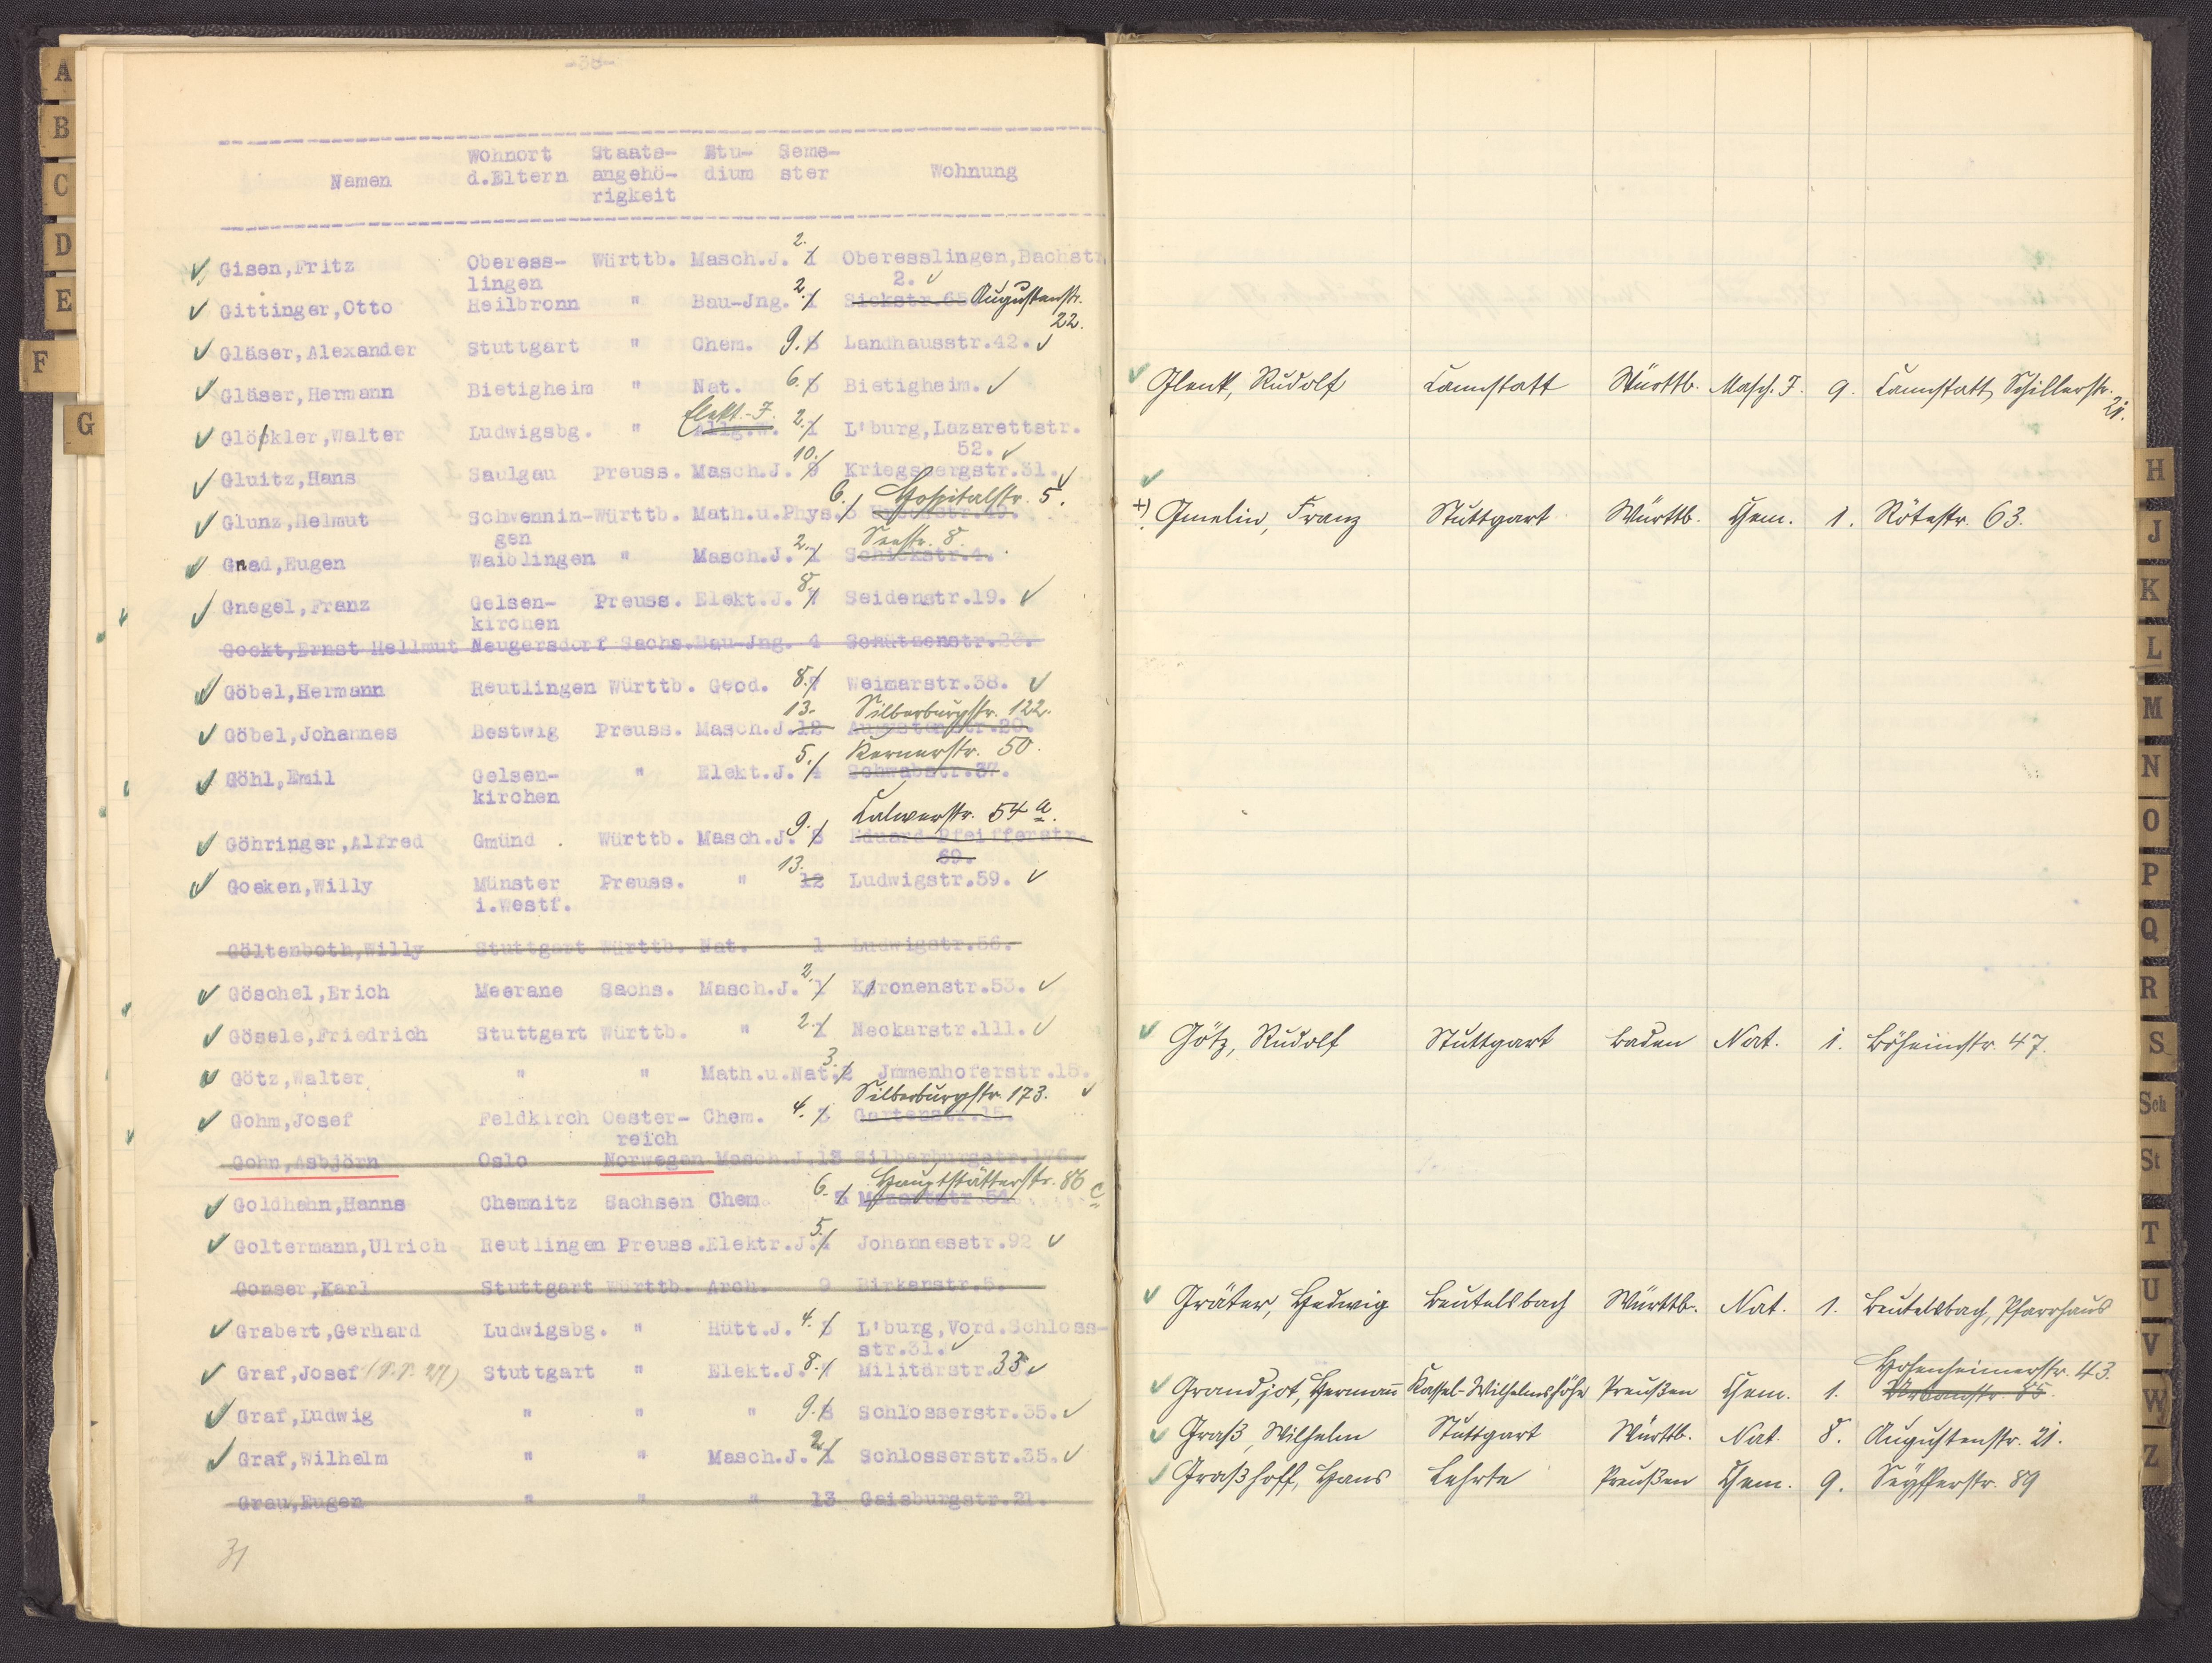 A
B
C
D
E
F
G
-38-
Wohnort Staats- Stu- Seme-
Namen d.Eltern angehö- dium ster Wohnung
rigkeit
2.
Gisen,Fritz Oberess- Württb. Masch.J. 1 Oberesslingen,Bachstr.
lingen 2.
Gittinger,Otto Heilbronn " Bau-Jng. 2. 1 Sickstr.65 Augustenstr.
22.
Gläser,Alexander Stuttgart " Chem. 9. 8 Landhausstr.42.
Gläser,Hermann Bietigheim " Nat. 6. 5 Bietigheim.
Elekt.-J.
Glöckler,Walter Ludwigsbg. " Allg.W. 2. 1 L'burg,Lazarettstr.
52.
Gluitz,Hans Saulgau Preuss. Masch.J. 10. 9 Kriegsbergstr.31.
Hospitalstr. 5.
Glunz,Helmut Schwennin- Württb. Math.u.Phys. 6. 5
gen
Seestr. 8.
Gnad,Eugen Waiblingen " Masch.J. 2. 1 Schickstr.4.
Gnegel,Franz Gelsen- Preuss. Elekt.J. 8. 7 Seidenstr.19.
kirchen
Gockt,Ernst Hellmut Neugersdorf Sachs. Bau-Jng. 4 Schützenstr.
Göbel,Hermann Reutlingen Württb. Geod. 8. 7 Weimarstr.38.
13. Silberburgstr. 122.
Göbel,Johannes Bestwig Preuss. Masch.J. 12 Augustenstr.20.
5. Kernerstr. 50.
Göhl,Emil Gelsen- " Elekt.J. 4 Schwabstr.37.
kirchen
Calwerstr. 54 a.
Göhringer,Alfred Gmünd . Württb. Masch.J. 9. 8 Eduard-Pfeifferstr.
69.
13.
Goeken,Willy Münster Preuss. " 12 Ludwigstr.59.
i.Westf.
Göltenboth,Willy Stuttgart Württb. Nat. 1 Ludwigstr.56.
Göschel,Erich Meerane Sachs. Masch.J. 2. 1 Kronenstr.53.
Gösele,Friedrich Stuttgart Württb. " 2. 1 Neckarstr.111.
Götz,Walter " " Math.u.Nat. 3. 2 Jmmenhoferstr.15.
Silberburgstr. 173.
Gohm,Josef Feldkirch Oester- Chem. 4. 3 Gartenstr.15.
reich
Gohn,Asbjörn Oslo Norwegen Masch.J. 13 Silberburgstr.176.
Hauptstätterstr. 86 c
Goldhahn,Hanns Chemnitz Sachsen Chem. 6. 5 Mozartstr.51
Goltermann,Ulrich Reutlingen Preuss. Elektr.J. 5. 4 Johannesstr.92
Gonser,Karl Stuttgart Württb. Arch. 9 Birkenstr.5.
Grabert,Gerhard Ludwigsbg. " Hütt.J. 4. 3 L'burg,Vord.Schloss-
str.31.
Graf,Josef Stuttgart " Elekt.J. 8. 7 Militärstr.33
Graf,Ludwig " " " 9. 8 Schlosserstr.35.
Graf,Wilhelm " " Masch.J. 2. 1 Schlosserstr.35.
Grau,Eugen " " " 13 Gaisburgstr.21.
31
Glenk, Rudolf Cannstatt Württb. Masch. J. 9. Cannstatt, Schillerstr.
21.
+) Gmelin, Franz Stuttgart Württb. Chem. 1. Rötestr. 63.
Götz, Rudolf Stuttgart Baden Nat. 1. Böheimstr. 47.
Gräter, Hedwig Beutelsbach Württb. Nat. 1. Beutelsbach, Pfarrhaus
Hohenheimerstr. 43.
Grandjot, Hermann Kassel-Wilhelmshöhe Preußen Chem. 1. Urbanstr. 85.
Graß, Wilhelm Stuttgart Württb. Nat. 8. Augustenstr. 21.
Graßhoff, Hans Lehrte Preußen Chem. 9. Seyfferstr. 89
H
J
K
L
M
N
O
P
Q
R
S
Sch
St
T
U
V
W
Z